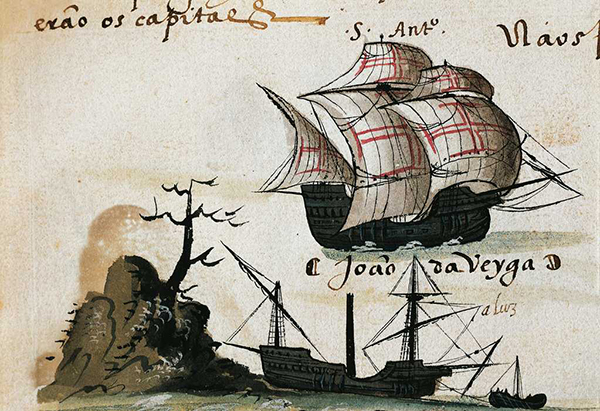 erão os capitaẽs
S. Antº.
Náos
João da Veyga
a luz